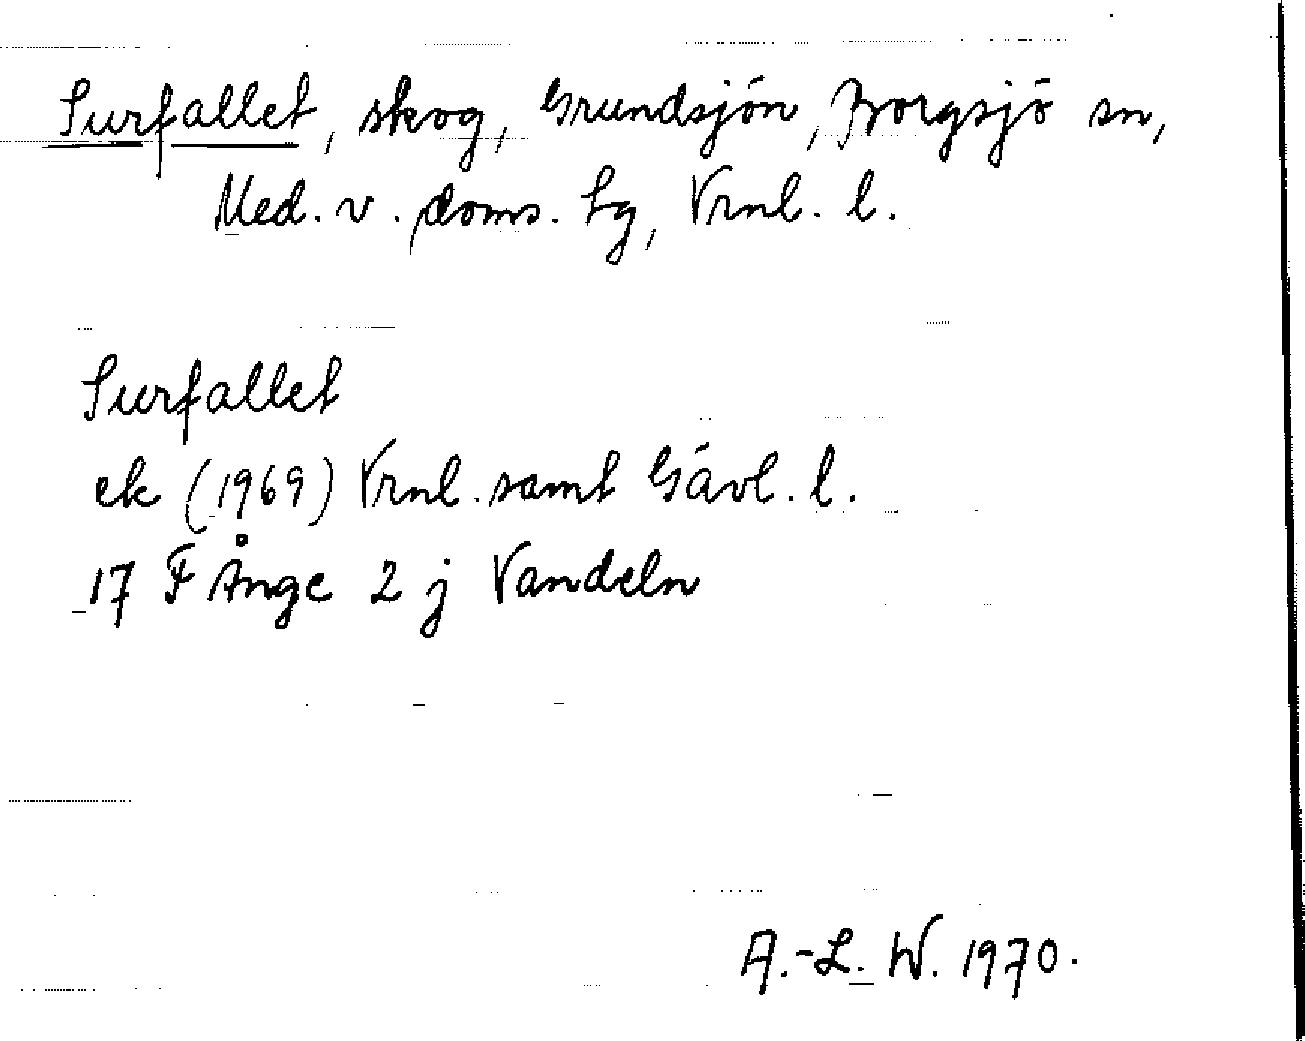 Surfallet, skog, Grundsjön, Borgsjö sn,
Med. v. doms. lg, Vrnl. l.
Surfallet
ek (1969) Vrnl. samt Gävl. l.
17 F Ånge 2 j Vandeln
A.-L. W. 1970.